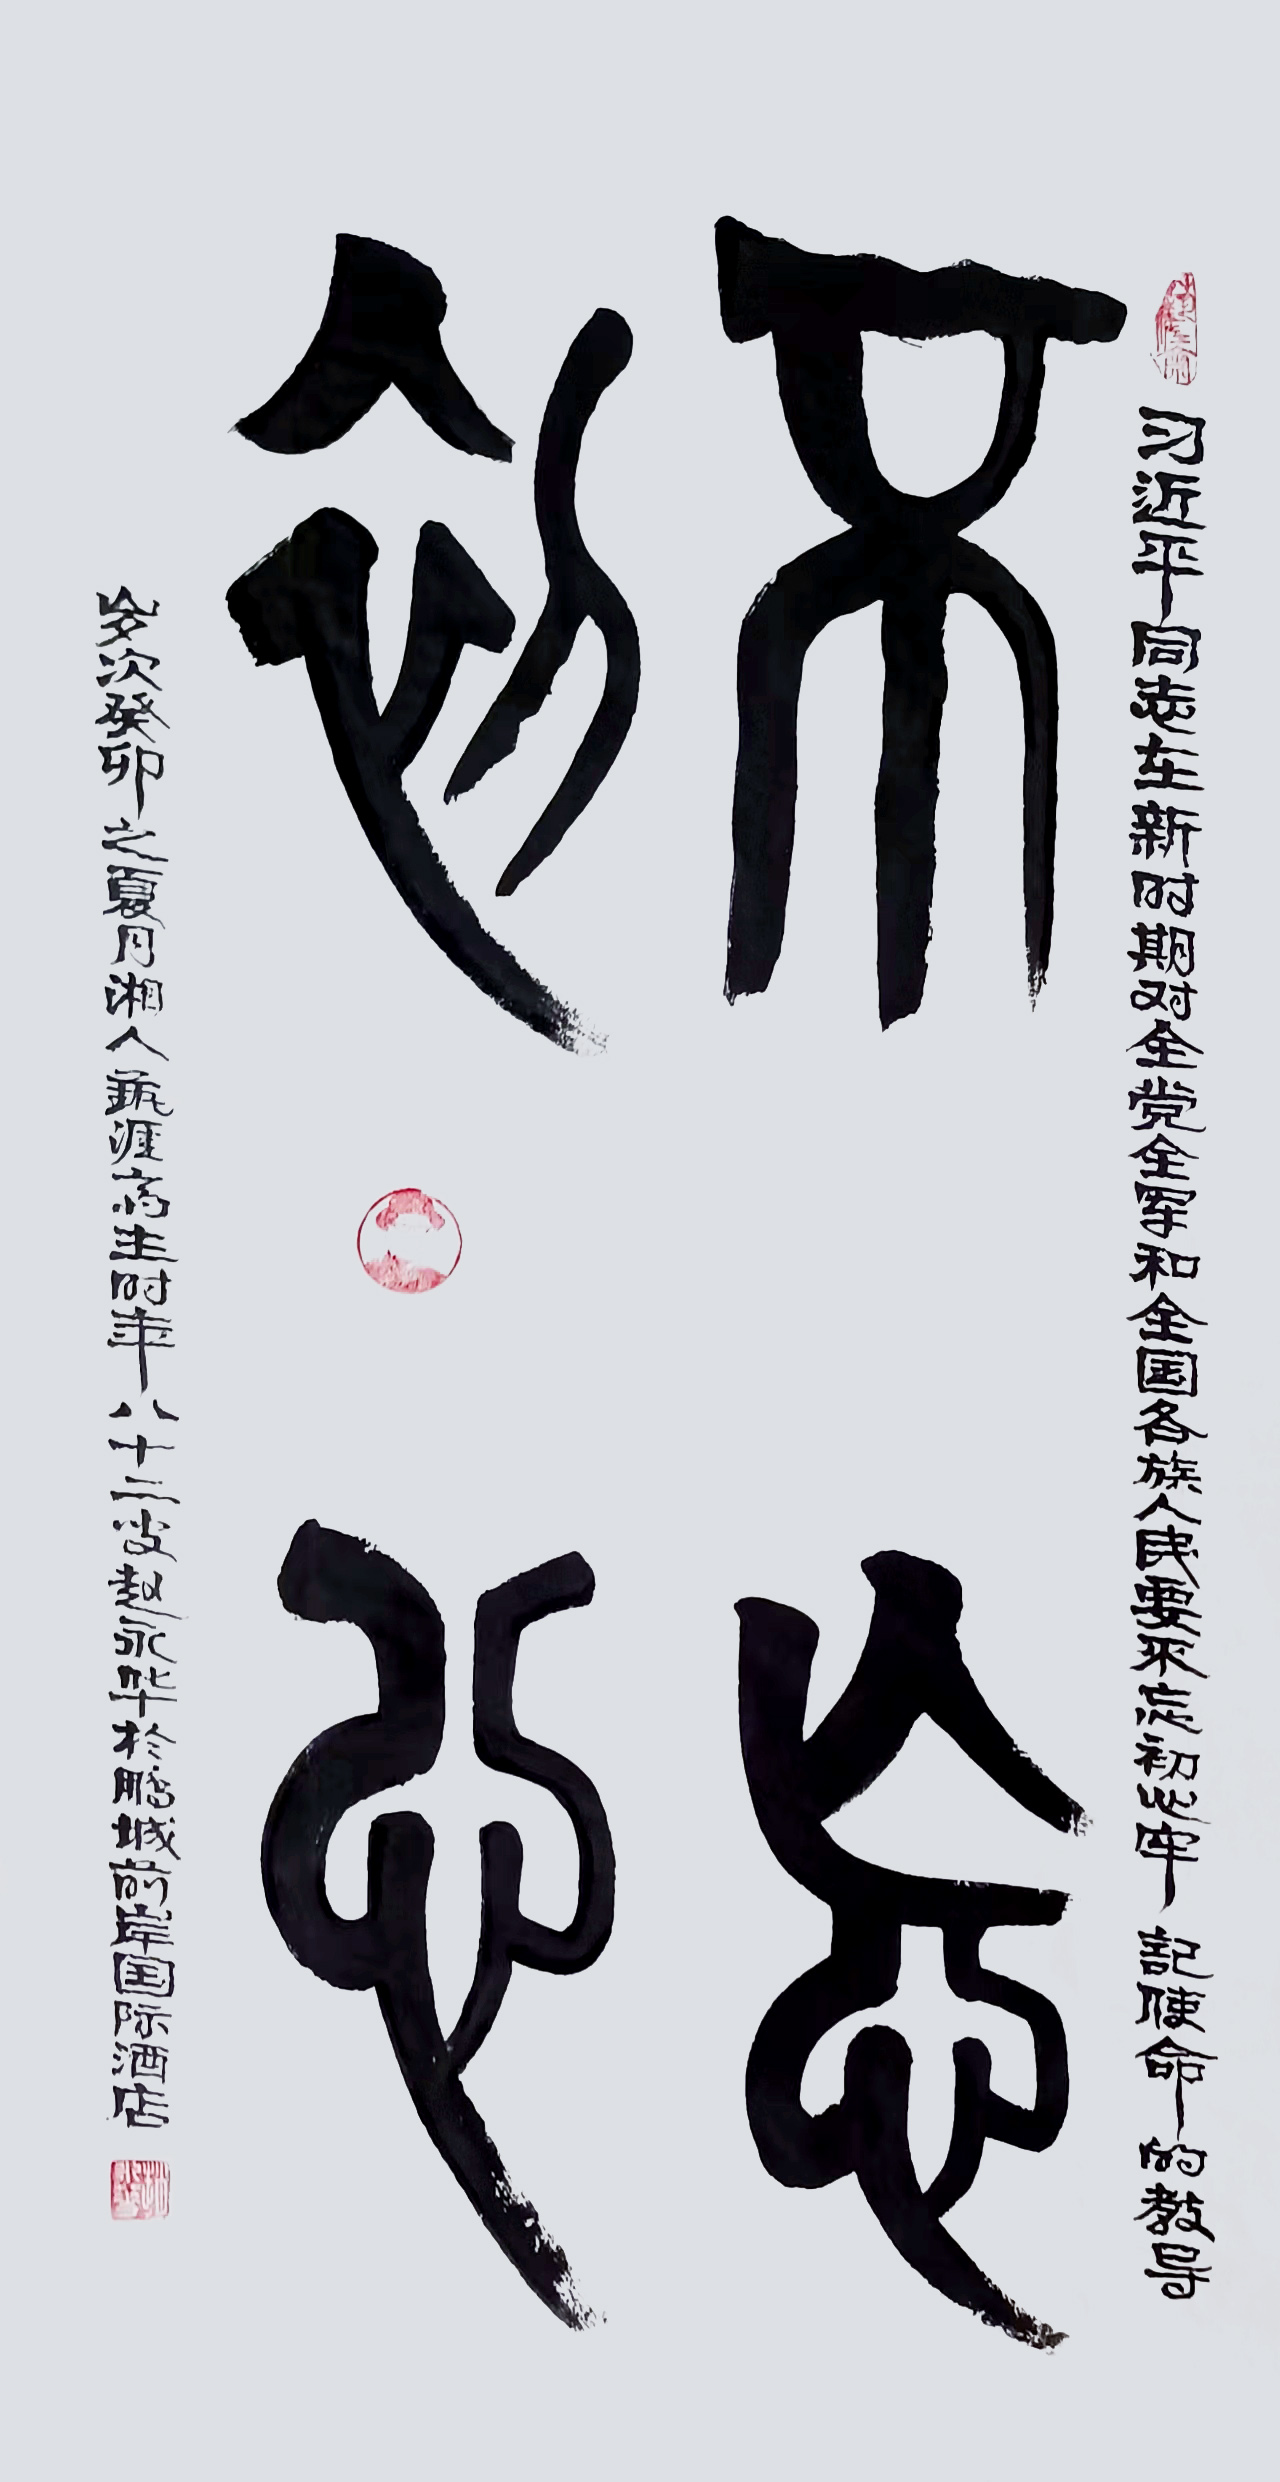 习近平同志在新时期对全党全军和全国各族人民要不忘初心牢記使命的教导
不忘
初心
岁次癸卯之夏月湘人涯主时年八十二叟赵永华於鹏城前岸国际酒店